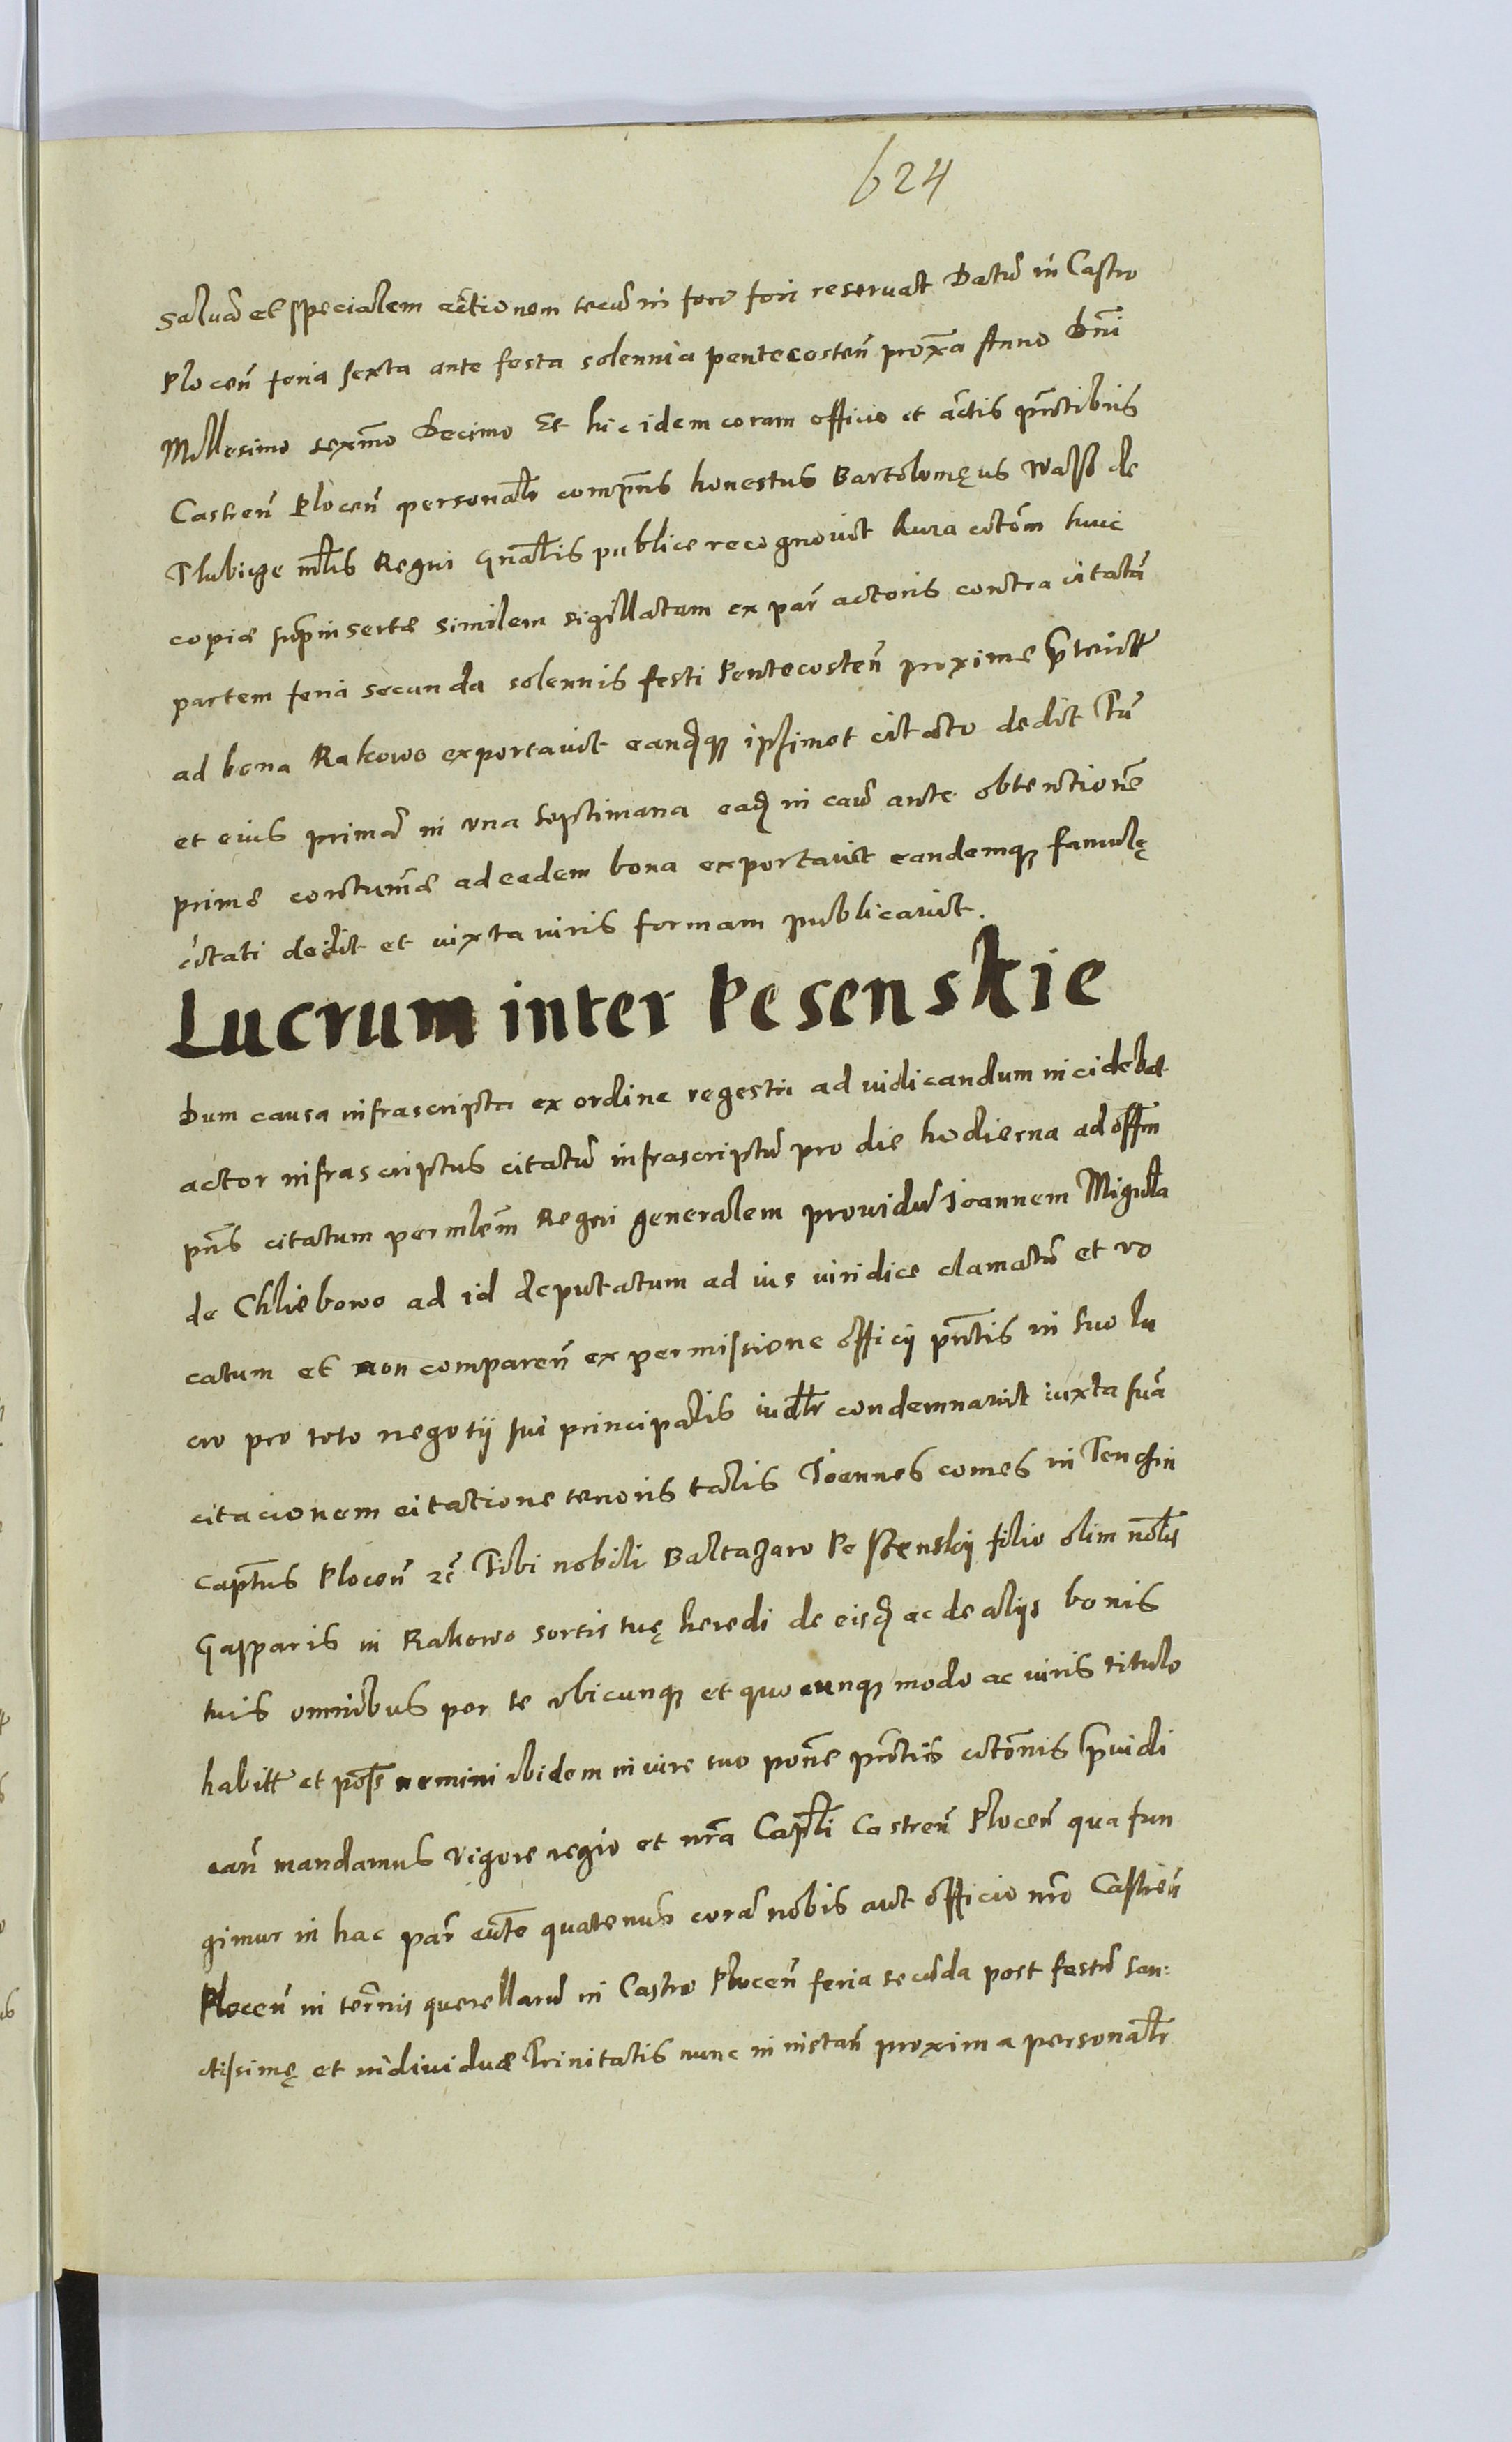 624
Saluã et specialem actionem tecũ in foro fori reseruat Datũ in Castro
Plocen̄ feria sexta ante festa solennia pentecosten̄ prox̄a Anno Dn̄i
Millesimo sexm̄o Decimo Et hic idem coram officio et actis pn̄tibus
Castren̄ Plocen̄ personalr̄ comp̄ns honestus Bartolomęus Wasz de
Tlubicze ml̄is Regni Gnal̄is publice recognouit cton̄m huic
copiæ sup̄insertæ similem sigillatam ex par̄ actoris contra citatã
partem feria secunda solennis festi Pentecosten̄ proxime p̄terit
ad bona Rakowo exportauit eandq̨ ipsimet citato dedit Tũ
et eius primã in una septimana ead in cau ante obtentionẽ
primæ contum̄æ ad eadem bona exportauit eandemq̨ famulę
citati dedit et iuxta iuris formam publicauit.
Lucrum inter Pesenskie
Dum causa infrascripta ex ordine regestri ad iudicandum incidebat
actor infrascriptus citatũ infrascriptũ pro die hodierna ad offm̄
pn̄s citatum per mlem̄ Regni generalem prouidũ Joannem Migula
de Chliebowo ad id deputatum ad ius iuridice clamatũ et vo
catum et non comparen̄ ex permissione officij pn̄tis in suo lu
cro pro toto negotij sui principalis iudlr̄ condemnauit iuxta suã
citacionem citatione tenoris talis Joannes comes in Tenchin
Capt̄us Plocen̄ zc̄ Tibi nobili Baltazaro Pe skj filio olim nobl̄is
Gasparis in Rakowo sortis tuę heredi de eisd ac de alijs bonis
tuis omnibus per te vbicunq̨ et quocunq̨ modo ac iuris titulo
habit et poss nemini ibidem in iure tuo pon̄e pn̄tis cton̄is p̄iudi
can̄ mandamus vigore regio et nr̄a Captl̄i Castren̄ Plocen̄ qua fun
gimur in hac par̄ autẽ quatenus corã nobis aut officio nr̄o Castren̄
Plocen̄ in termĩs querellarũ in Castro Plocen̄ feria secũda post festũ san:
ctissimę et indiuiduæ Trinitatis nunc in instan̄ proxima personalr̄